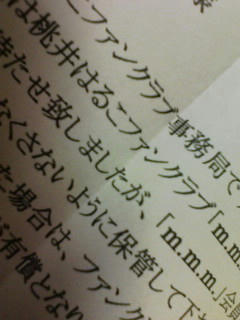 様
こファンクラブ事務局で
は桃井はるこファンクラブ「m.m
待たせ致しましたが、「m.m.m.」会員
なくさないように保管して下
た場合は、ファンク
有償とな